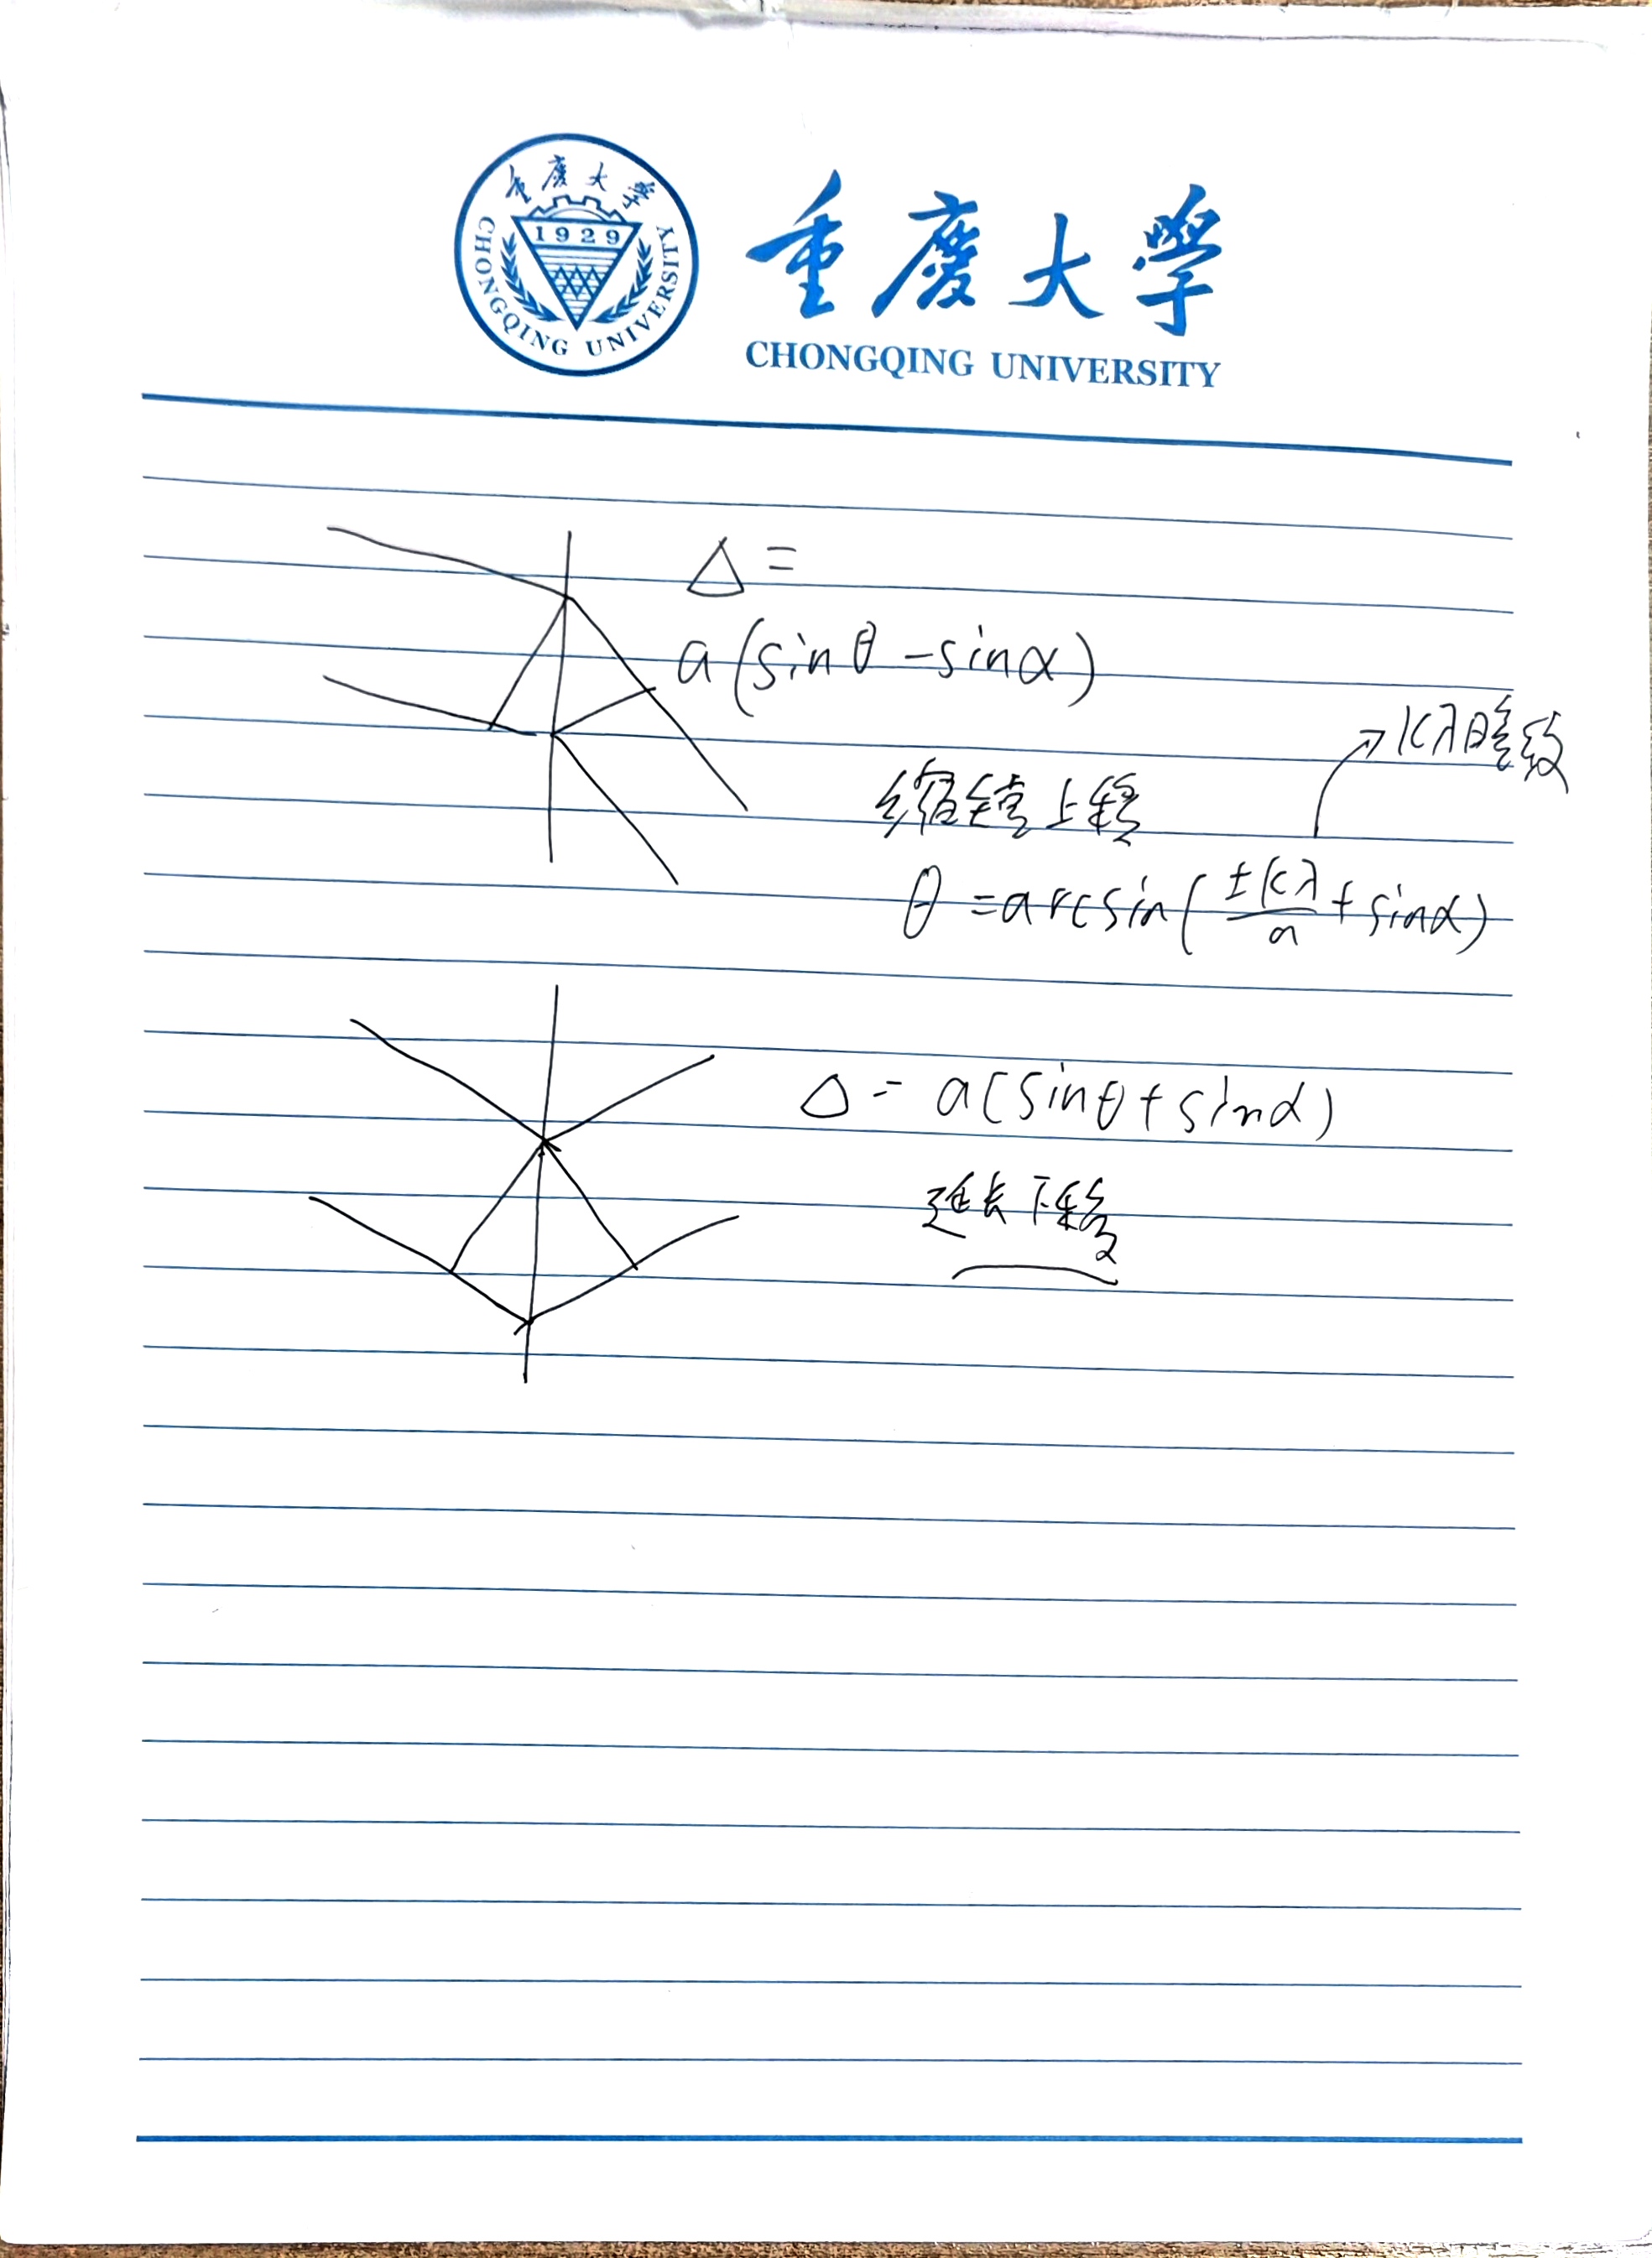 重慶大學
1929
CHONGQING UNIVERSITY
重慶大學
CHONGQING UNIVERSITY
Δ =
a(sinθ - sinα)
kλ暗纹
缩短上移
θ = arcsin(±kλ/a + sinα)
Δ = a(sinθ + sinα)
延长下移